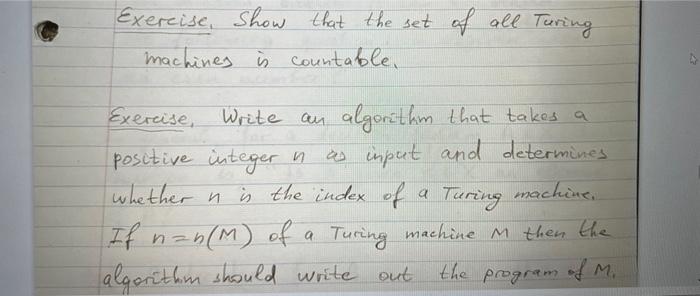 Exercise. Show that the set of all Turing
machines is countable.
Exercise. Write an algorithm that takes a
positive integer n as input and determines
whether n is the index of a Turing machine.
If n=n(M) of a Turing machine M then the
algorithm should write out the program of M.